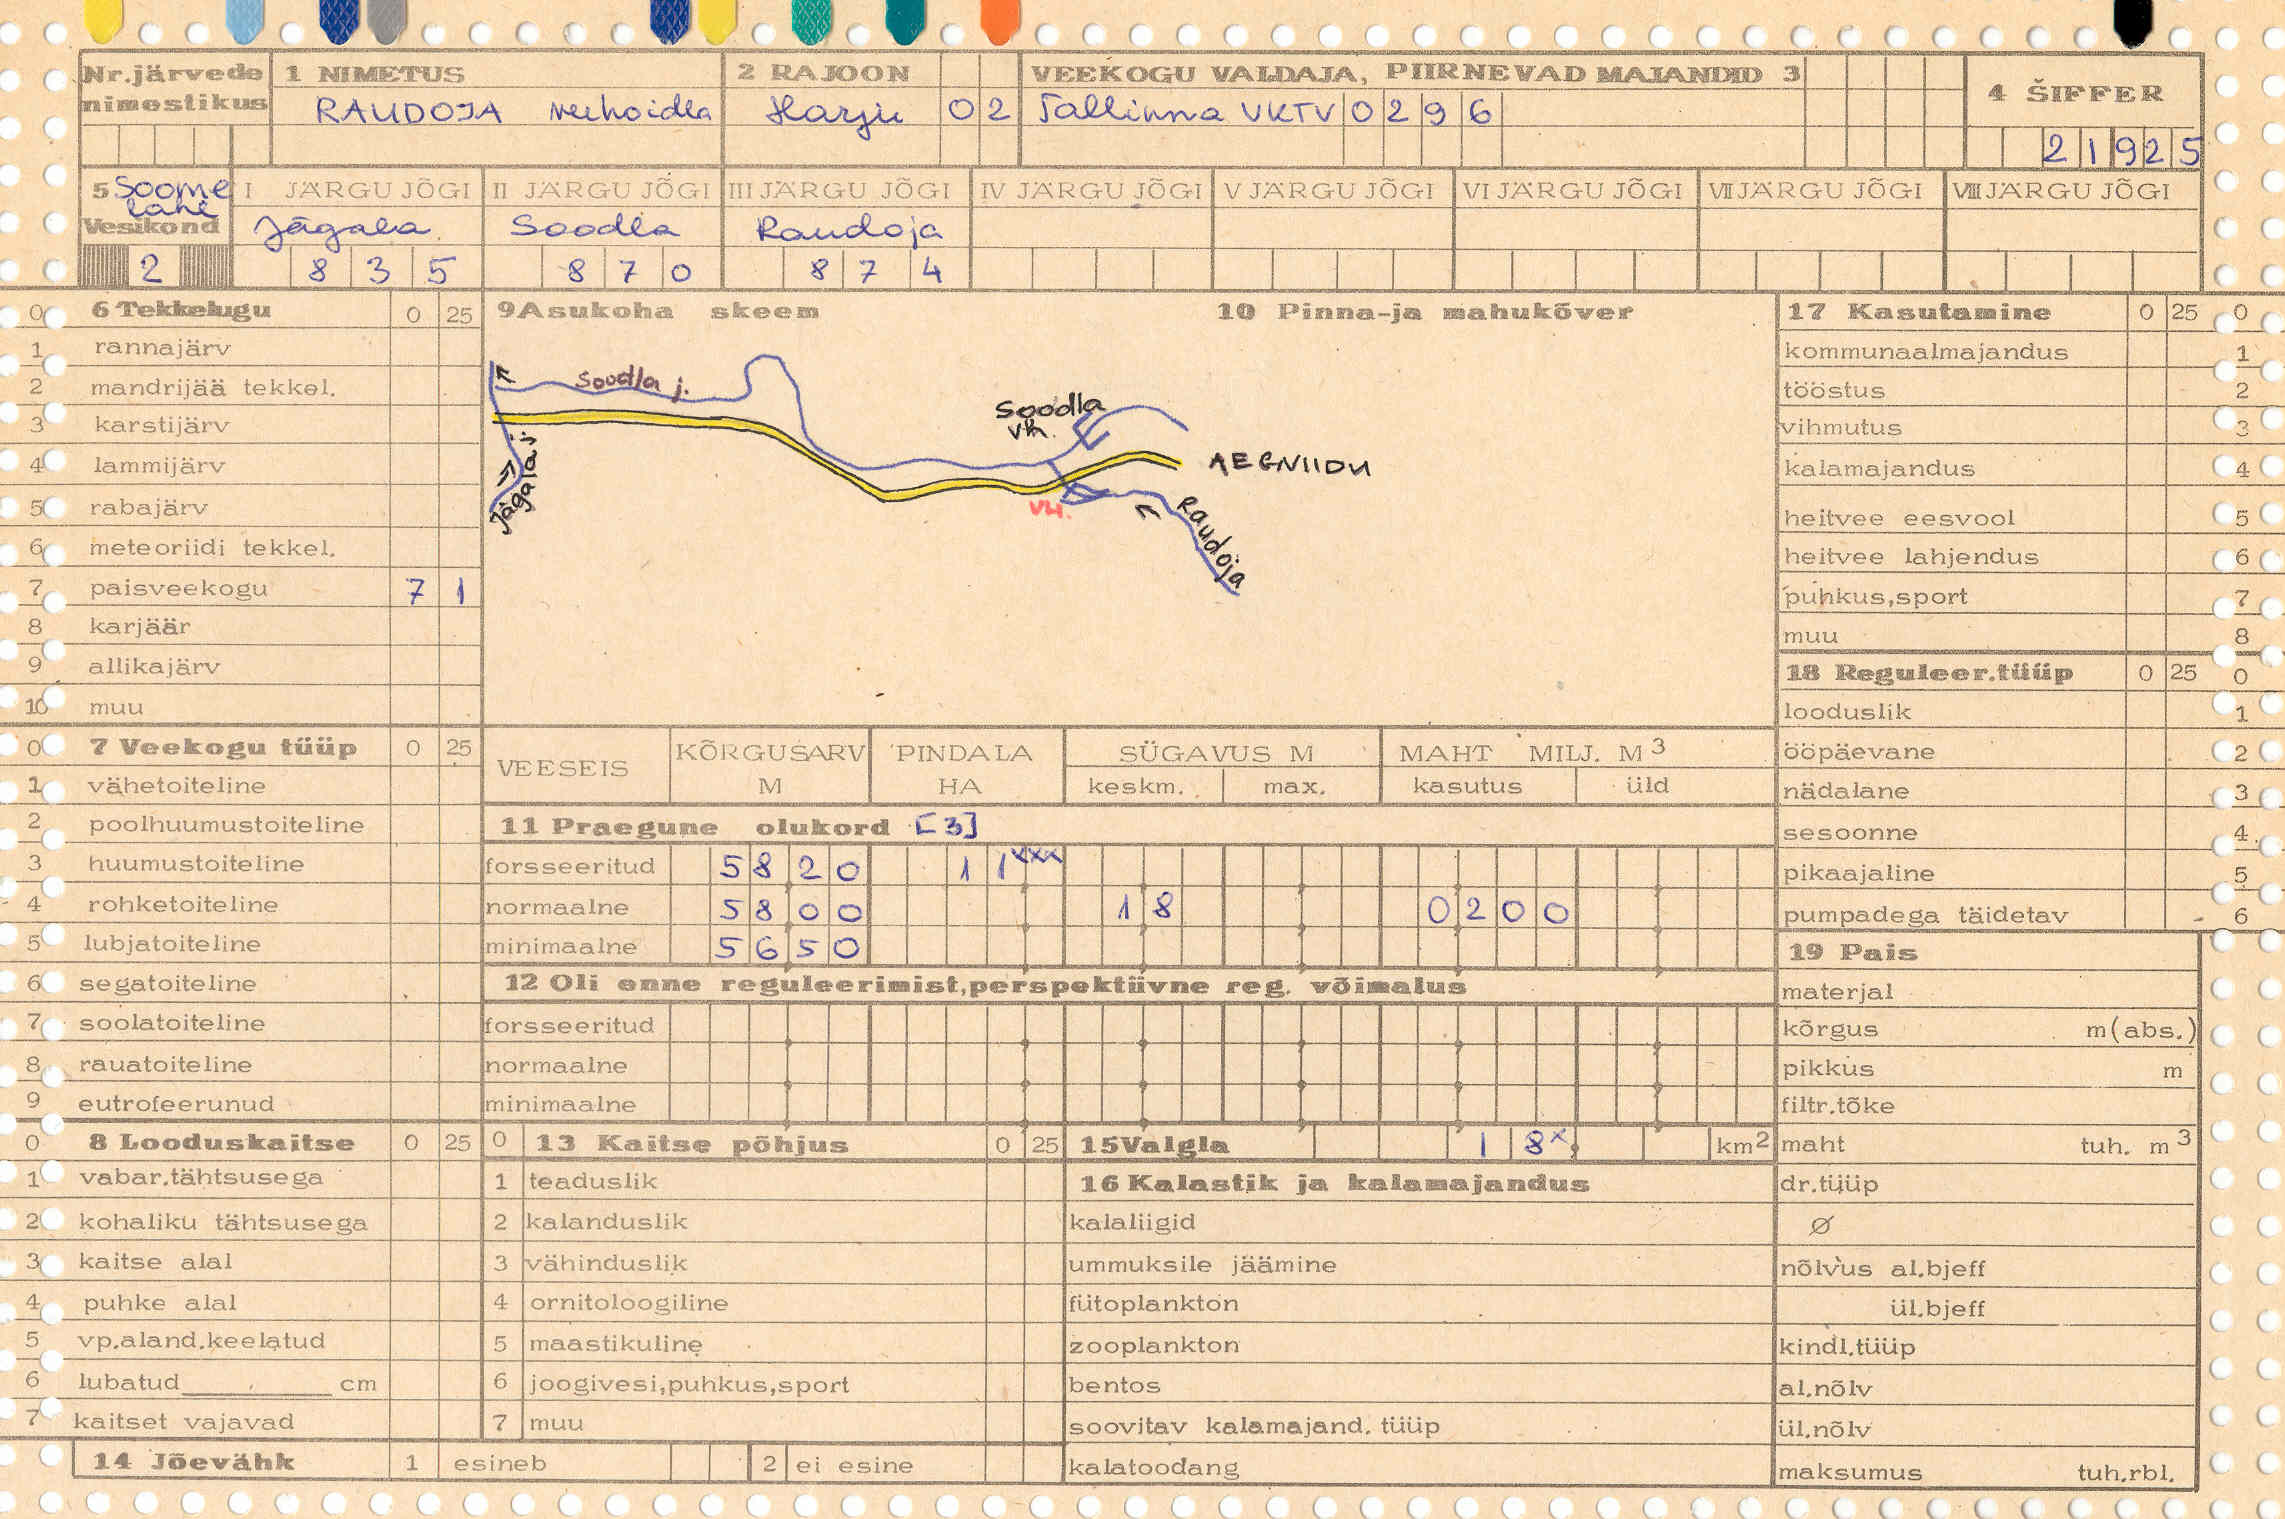 Nr.järvede 1 NIMETUS 2 RAJOON VEEKOGU VALDAJA, PIIRNEVAD MAJANDID 3
nimestikus RAUDOJA veehoidla Harju 02 Tallinna VKTV 0296 4 ŠIFFER
21925
5 Soome I JÄRGU JÕGI II JÄRGU JÕGI III JÄRGU JÕGI IV JÄRGU JÕGI V JÄRGU JÕGI VI JÄRGU JÕGI VII JÄRGU JÕGI VIII JÄRGU JÕGI
lahe
Vesikond Jägala Soodla Raudoja
2 835 870 874
0 6 Tekkelugu 0 25
1 rannajärv
2 mandrijää tekkel.
3 karstijärv
4 lammijärv
5 rabajärv
6 meteoriidi tekkel.
7 paisveekogu 7 1
8 karjäär
9 allikajärv
10 muu
9 Asukoha skeem 10 Pinna-ja mahukõver
Soodla j.
Soodla
vh.
AEGVIIDU
Jägala j.
VH.
Raudoja
17 Kasutamine 0 25 0
kommunaalmajandus 1
tööstus 2
vihmutus 3
kalamajandus 4
heitvee eesvool 5
heitvee lahjendus 6
puhkus,sport 7
muu 8
18 Reguleer.tüüp 0 25 0
looduslik 1
ööpäevane 2
nädalane 3
sesoonne 4
pikaajaline 5
pumpadega täidetav 6
0 7 Veekogu tüüp 0 25
1 vähetoiteline
2 poolhuumustoiteline
3 huumustoiteline
4 rohketoiteline
5 lubjatoiteline
6 segatoiteline
7 soolatoiteline
8 rauatoiteline
9 eutrofeerunud
VEESEIS KÕRGUSARV M PINDALA HA SÜGAVUS M MAHT MILJ. M3
keskm. max. kasutus üld
11 Praegune olukord [3]
forsseeritud 5820 11xxx
normaalne 5800 18 0200
minimaalne 5650
12 Oli enne reguleerimist,perspektiivne reg. võimalus
forsseeritud
normaalne
minimaalne
19 Pais
materjal
kõrgus m(abs.)
pikkus m
filtr.tõke
maht tuh. m3
dr.tüüp
Ø
nõlvus al.bjeff
ül.bjeff
kindl.tüüp
al.nõlv
ül.nõlv
maksumus tuh.rbl.
0 8 Looduskaitse 0 25
1 vabar.tähtsusega
2 kohaliku tähtsusega
3 kaitse alal
4 puhke alal
5 vp.aland.keelatud
6 lubatud cm
7 kaitset vajavad
0 13 Kaitse põhjus 0 25
1 teaduslik
2 kalanduslik
3 vähinduslik
4 ornitoloogiline
5 maastikuline
6 joogivesi,puhkus,sport
7 muu
15 Valgla 18x km2
16 Kalastik ja kalamajandus
kalaliigid
ummuksile jäämine
fütoplankton
zooplankton
bentos
soovitav kalamajand. tüüp
kalatoodang
14 Jõevähk 1 esineb 2 ei esine